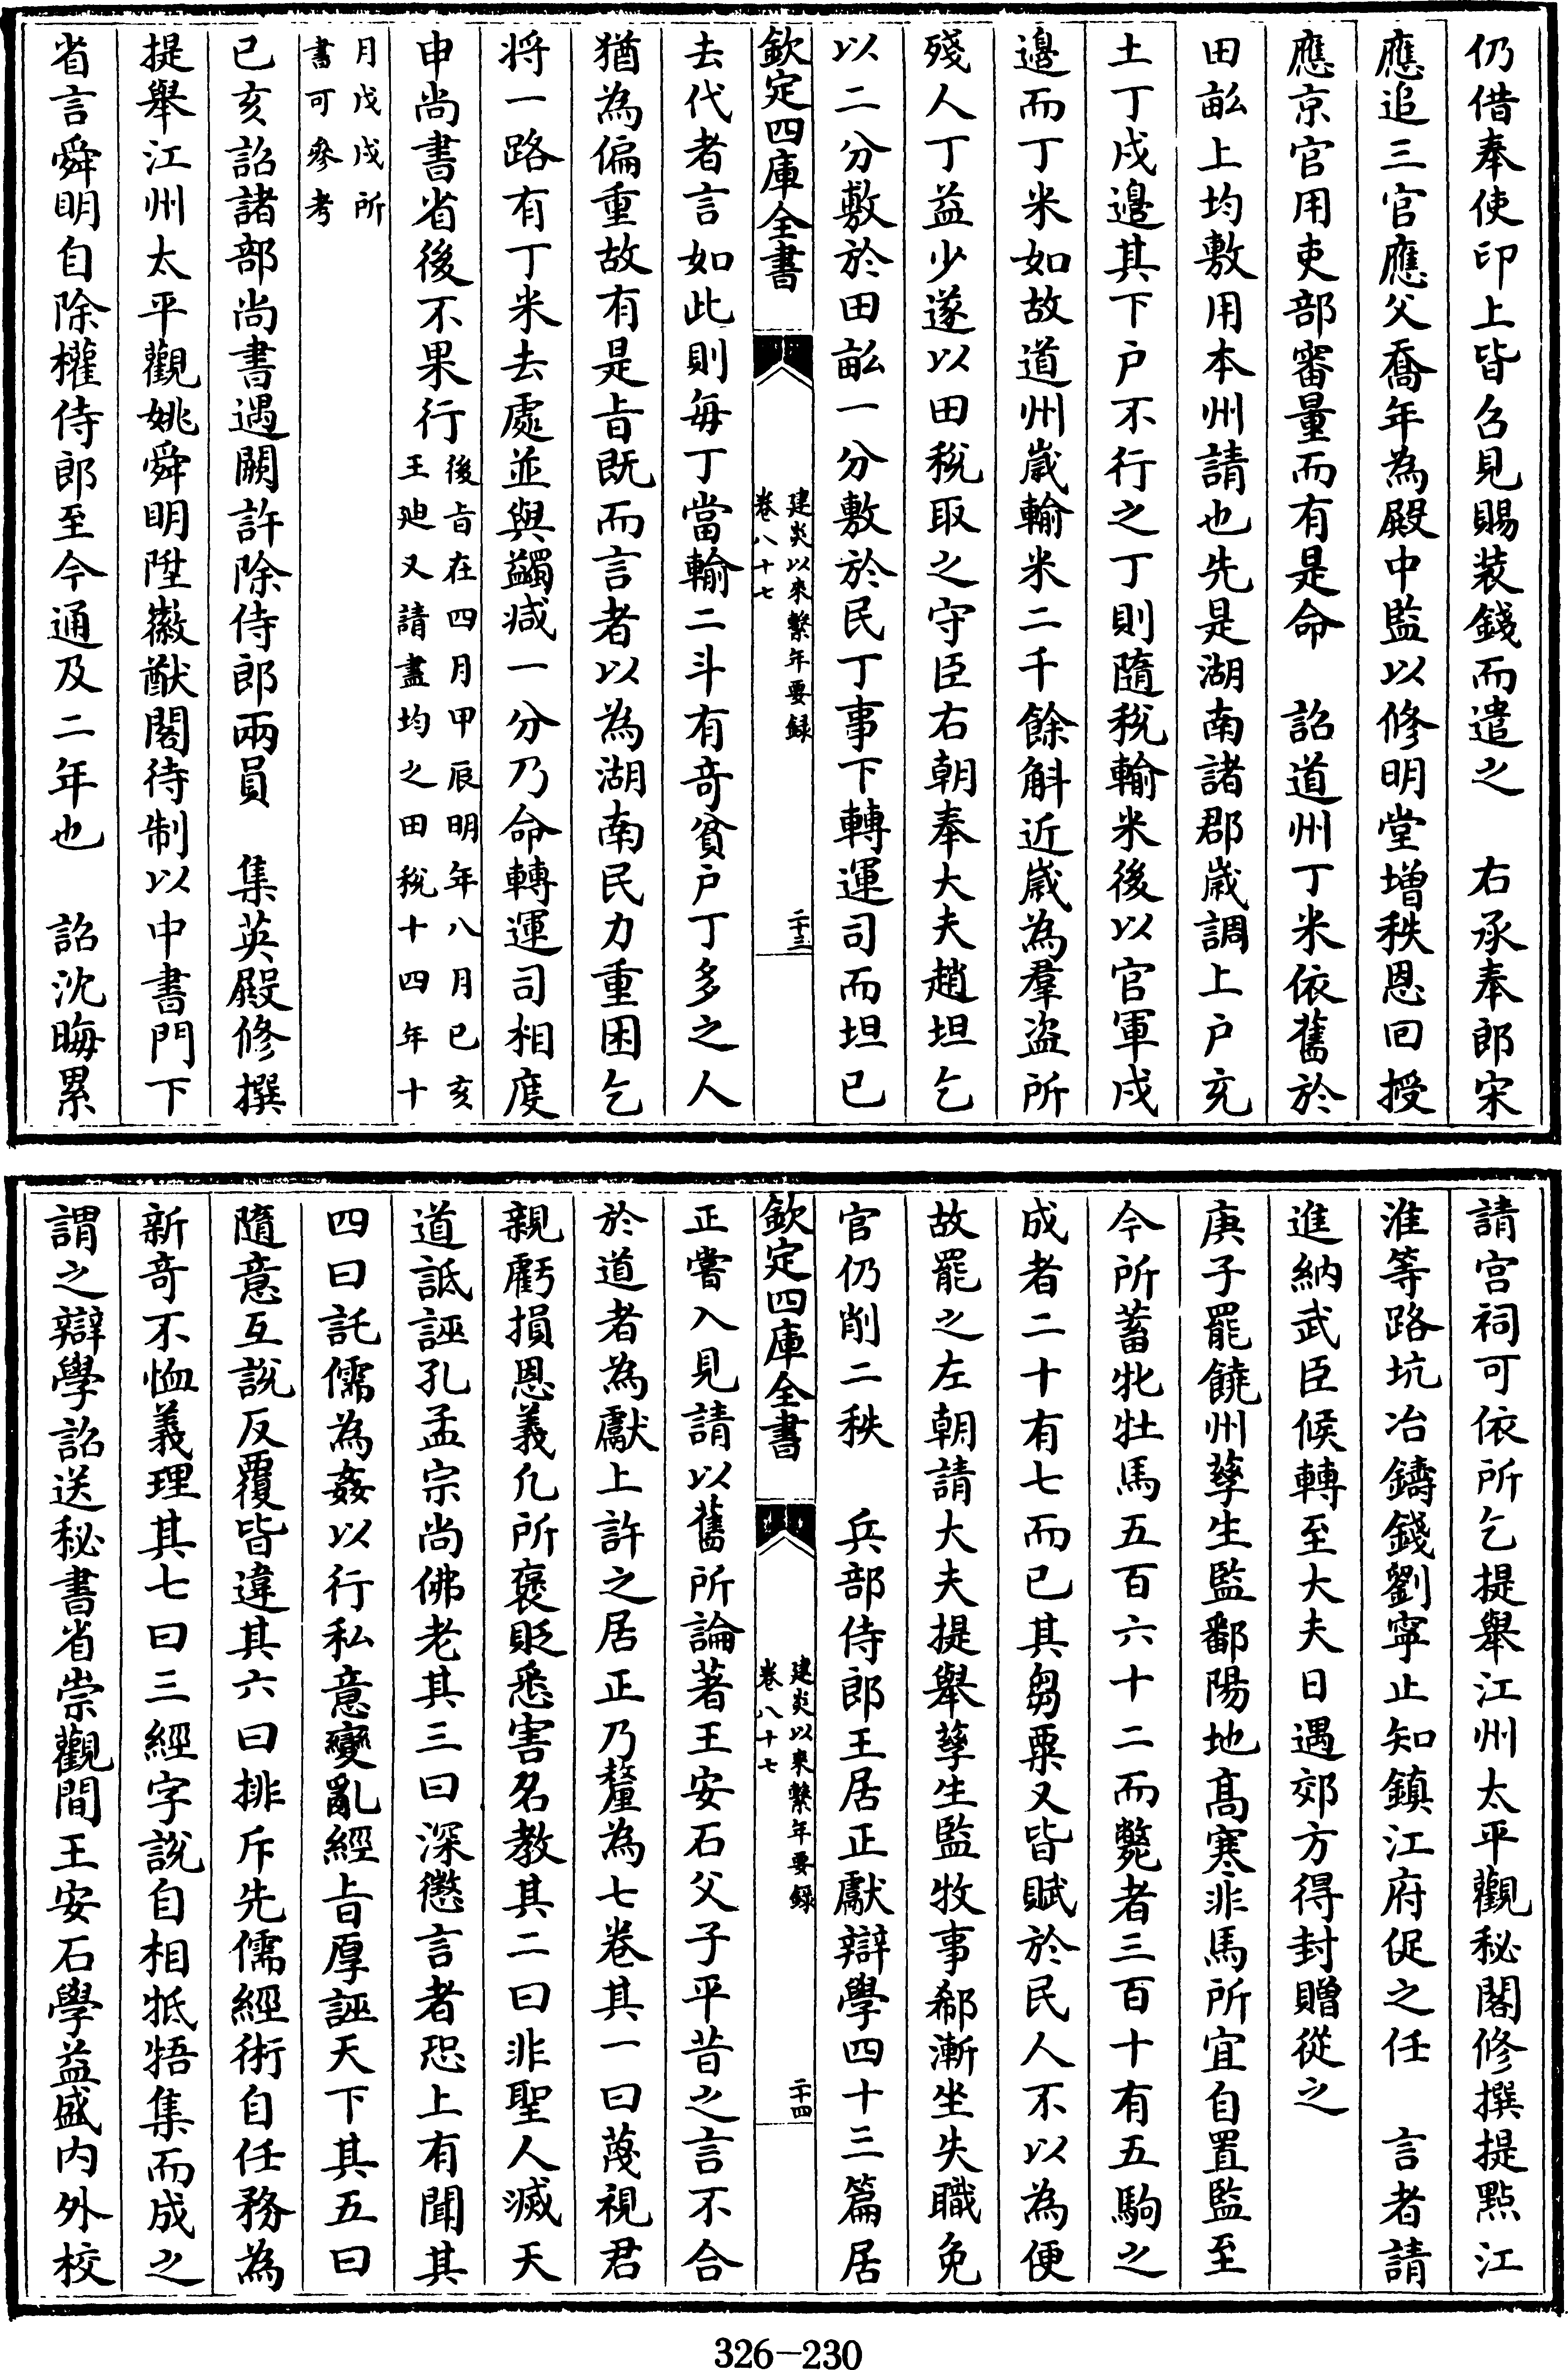 仍借奉使印上皆召見賜裝錢而遣之　右承奉郎宋
應追三官應父喬年為殿中監以修明堂增秩恩回授
應京官用吏部審量而有是命　詔道州丁米依舊於
田畝上均敷用本州請也先是湖南諸郡歲調上户充
土丁戍邊其下户不行之丁則隨稅輸米後以官軍戍
邊而丁米如故道州歲輸米二千餘斛近歲為羣盜所
殘人丁益少遂以田稅取之守臣右朝奉大夫趙坦乞
以二分敷於田畝一分敷於民丁事下轉運司而坦已
欽定四庫全書
建炎以來繫年要録
卷八十七
二十三
去代者言如此則每丁當輸二斗有奇貧户丁多之人
猶為偏重故有是旨既而言者以為湖南民力重困乞
將一路有丁米去處並與蠲减一分乃命轉運司相度
申尚書省後不果行後旨在四月甲辰明年八月已亥
王𢌞又請盡均之田稅十四年十
月戊戍所
書可參考
已亥詔諸部尚書遇闕許除侍郎兩員　集英殿修撰
提舉江州太平觀姚舜明陞徽猷閣待制以中書門下
省言舜明自除權侍郎至今通及二年也　詔沈晦累
請宮祠可依所乞提舉江州太平觀秘閣修撰提點江
淮等路坑冶鑄錢劉寧止知鎮江府促之任　言者請
進納武臣候轉至大夫日遇郊方得封贈從之
庚子罷饒州孳生監鄱陽地高寒非馬所宜自置監至
今所蓄牝牡馬五百六十二而斃者三百十有五駒之
成者二十有七而已其芻粟又皆賦於民人不以為便
故罷之左朝請大夫提舉孳生監牧事郗漸坐失職免
官仍削二秩　兵部侍郎王居正獻辯學四十三篇居
欽定四庫全書
建炎以來繫年要録
卷八十七
二十四
正嘗入見請以舊所論著王安石父子平昔之言不合
於道者為獻上許之居正乃釐為七卷其一曰蔑視君
親虧損恩義凡所褒貶悉害名教其二曰非聖人滅天
道詆誣孔孟宗尚佛老其三曰深懲言者恐上有聞其
四曰託儒為姦以行私意變亂經旨厚誣天下其五曰
隨意互說反覆皆違其六曰排斥先儒經術自任務為
新奇不恤義理其七曰三經字說自相抵牾集而成之
謂之辯學詔送秘書省崇觀間王安石學益盛内外校
326-230